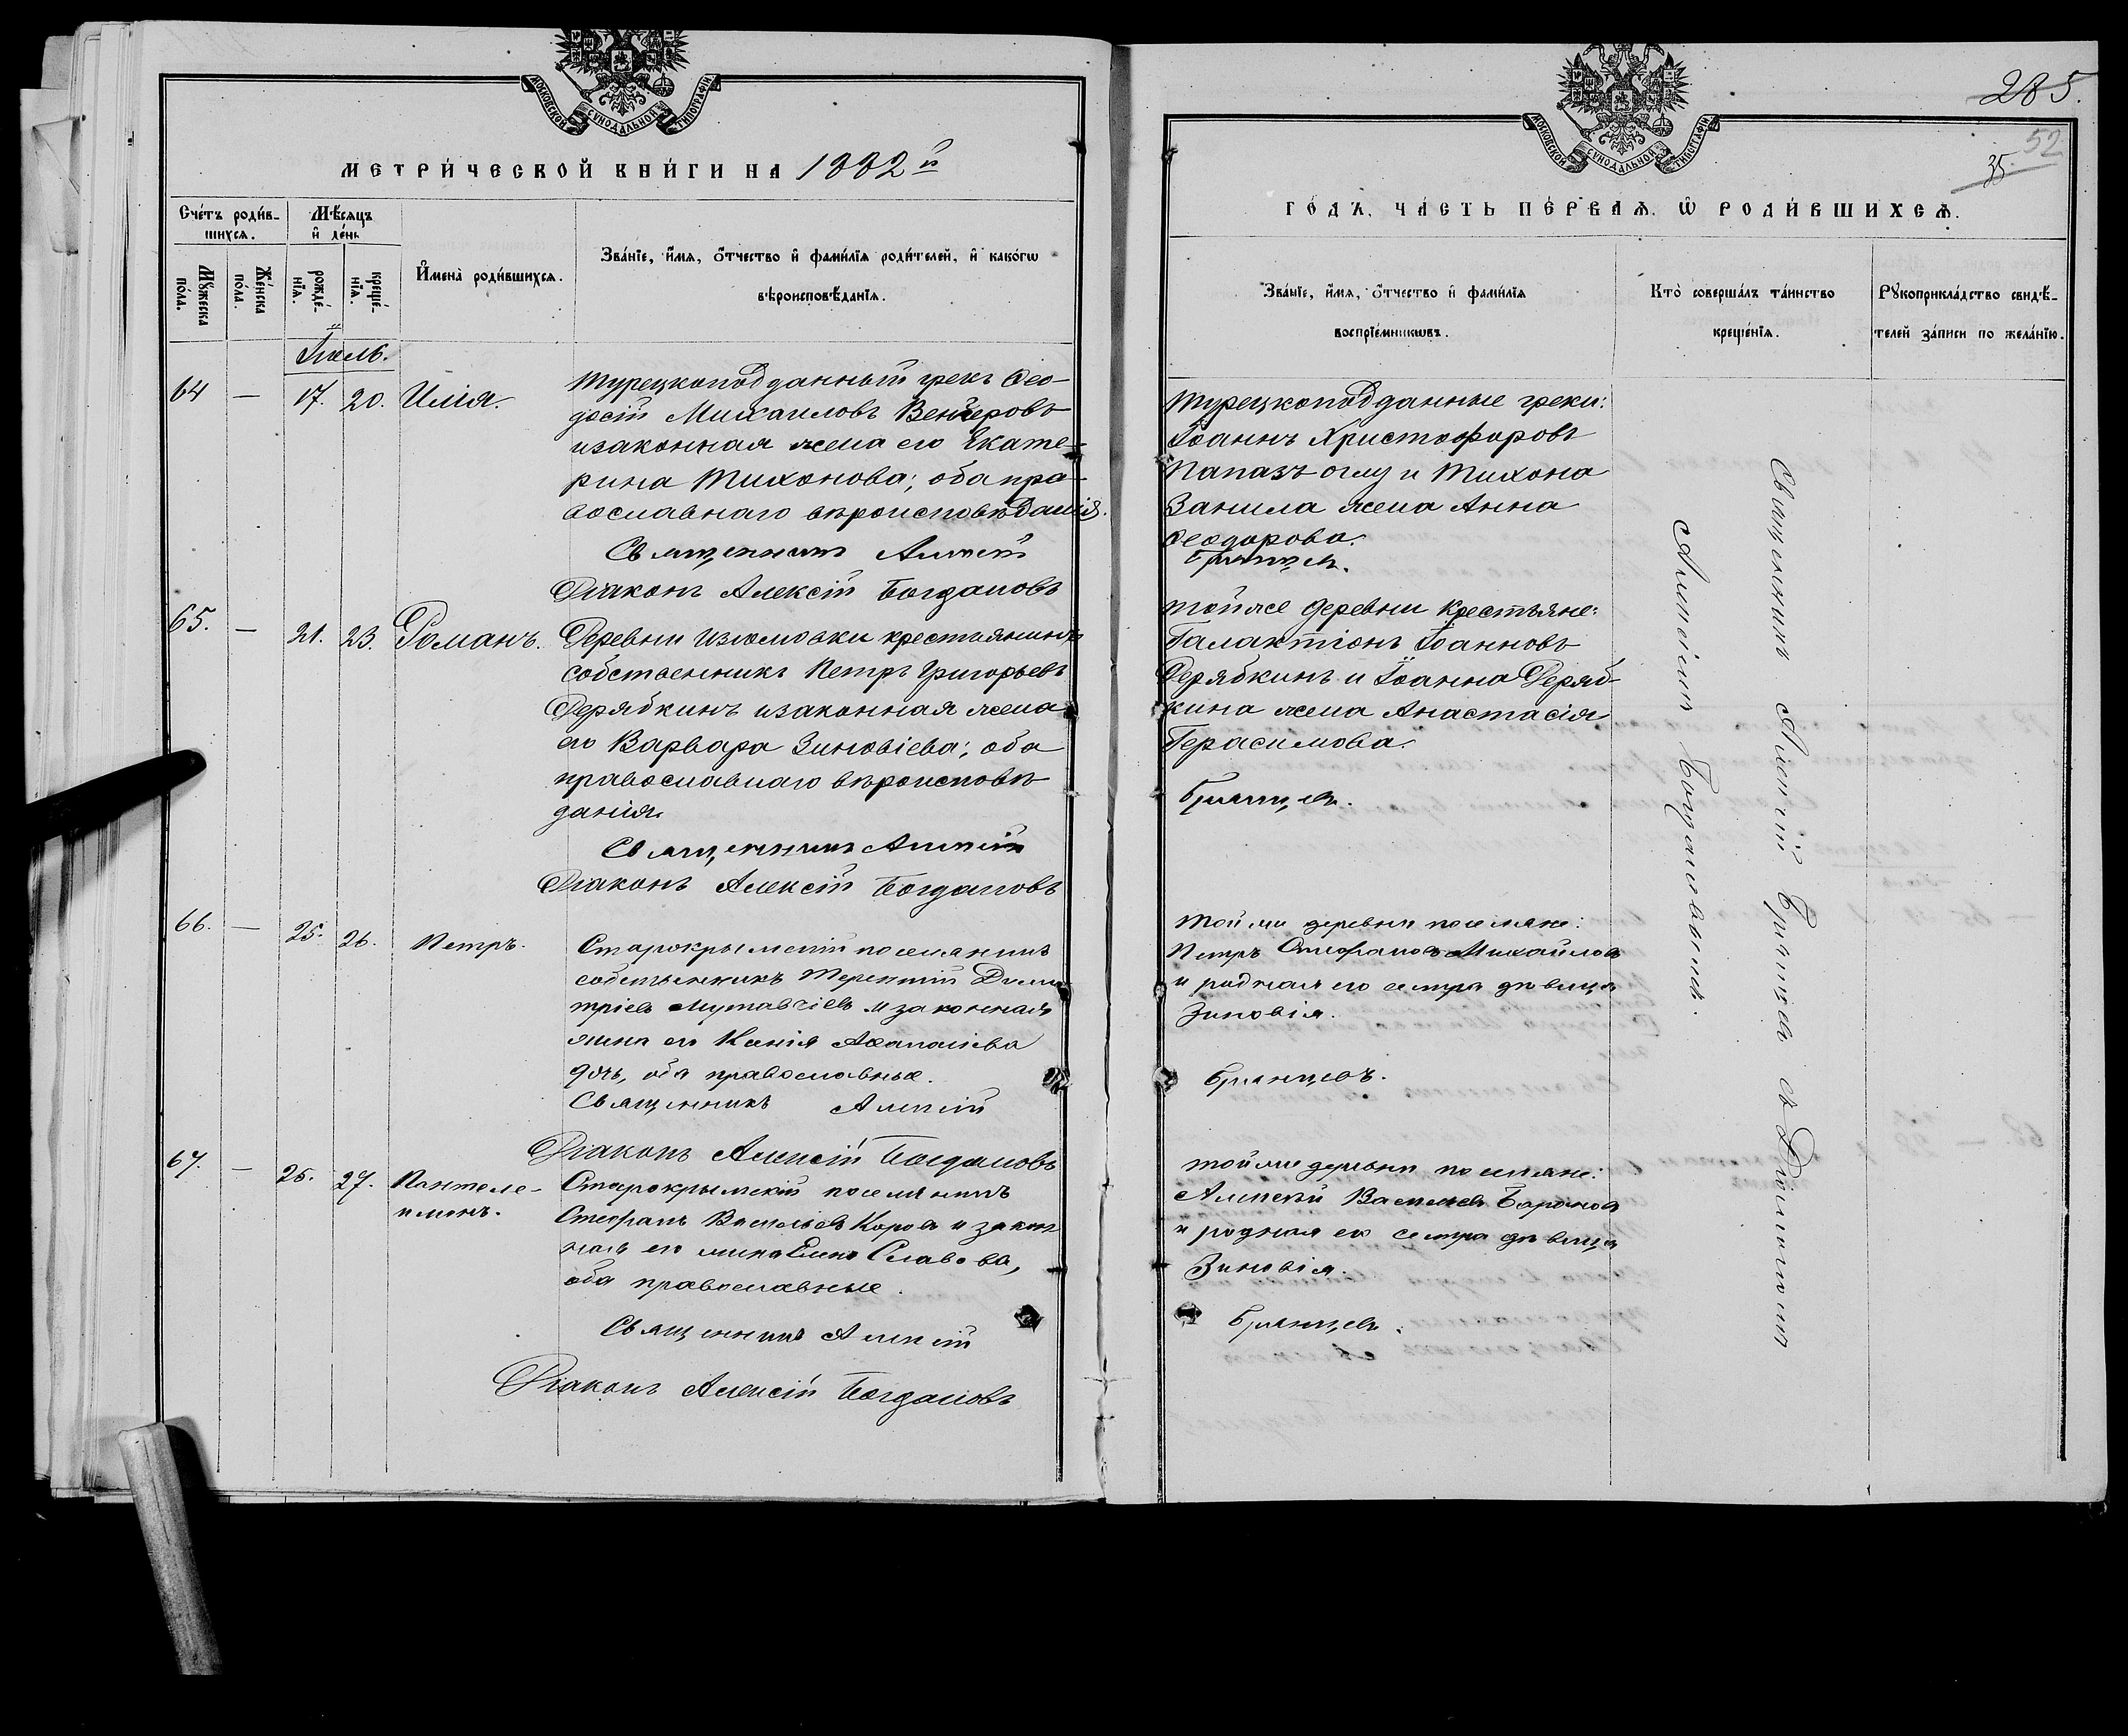 МОСКОВСКОЙ СУНОДАЛЬНОЙ ТИПОГРАФІИ
МЕТРИ́ЧЕСКОЙ КНИ́ГИ НА 1882 й
Сче́тъ роди́в-
шихся.
Мѣ́сяцъ
и҆ де́нь
Мꙋ́жеска
по́ла.
Же́нска
по́ла.
рожде́-
нїя.
креще́-
нїя.
И҆мена̀ роди́вшихся.
Зва́нїе, и҆́мя, ѻ҆́тчество и҆ фами́лїя роди́телей, и҆ како́гѡ
вѣроисповѣ́данїя.
Іюль.
64 — 17. 20. Илія.
Турецкоподданный грекъ Ѳео-
досій Михаиловъ Венжеровъ
изаконная жена его Екате-
рина Тихонова; оба пра-
вославнаго вѣроисповѣданія.
Священникъ Алексій
Діаконъ Алексій Богдановъ
65. — 21. 23. Романъ.
Деревни Изюмовки крестьянинъ
собственникъ Петръ Григорьевъ
Дерябкинъ изаконная жена
его Варвара Зиновіева; оба
православнаго вѣроисповѣ
данія.
Священникъ Алексій
Діаконъ Алексій Богдановъ
66. — 25. 26. Петръ.
Старокрымскій поселянинъ
собственникъ Терентій Дими
тріевъ Мутавчіевъ и законная
жена его Ксенія Аѳанасіева
дочь, оба православные.
Священникъ Алексій
Діаконъ Алексій Богдановъ
67. — 25. 27. Пантеле-
имонъ.
Старокрымскій поселянинъ
Стефанъ Васильевъ Коровъ и закон
ная его жена Елена Славова,
оба православные.
Священникъ Алексій
Діаконъ Алексій Богдановъ
МОСКОВСКОЙ СУНОДАЛЬНОЙ ТИПОГРАФІИ
285.
52
35
ГО́ДЪ, ЧА́СТЬ ПЕ́РВАЯ, Ѡ҆ РОДИ́ВШИХСЯ.
Зва́нїе, и҆́мя, ѻ҆́тчество и҆ фами́лїя
воспрїе́мникѡвъ.
Кто̀ соверша́лъ та́инство
креще́нїя.
Рꙋкоприкла́дство свидѣ́-
телей за́писи по жела́нїю.
Турецкоподданные греки:
Іоаннъ Христофоровъ
Папазъ оглу и Тихона
Занила жена Анна
Ѳеодорова.
Брянцевъ.
Тойже деревни крестьяне:
Галактіонъ Іоанновъ
Дерябкинъ и Іоанна Деряб-
кина жена Анастасія
Герасимова.
Брянцевъ.
Той же деревни поселяне:
Петръ Стефановъ Михайловъ
и родная его сестра дѣвица
Зиновія.
Брянцевъ.
Той же деревни поселяне:
Алексѣй Васильевъ Бароновъ
и родная его сестра дѣвица
Зиновія.
Брянцевъ.
Священникъ Алексій Брянцевъ съ Діакономъ
Алексіемъ Богдановымъ.